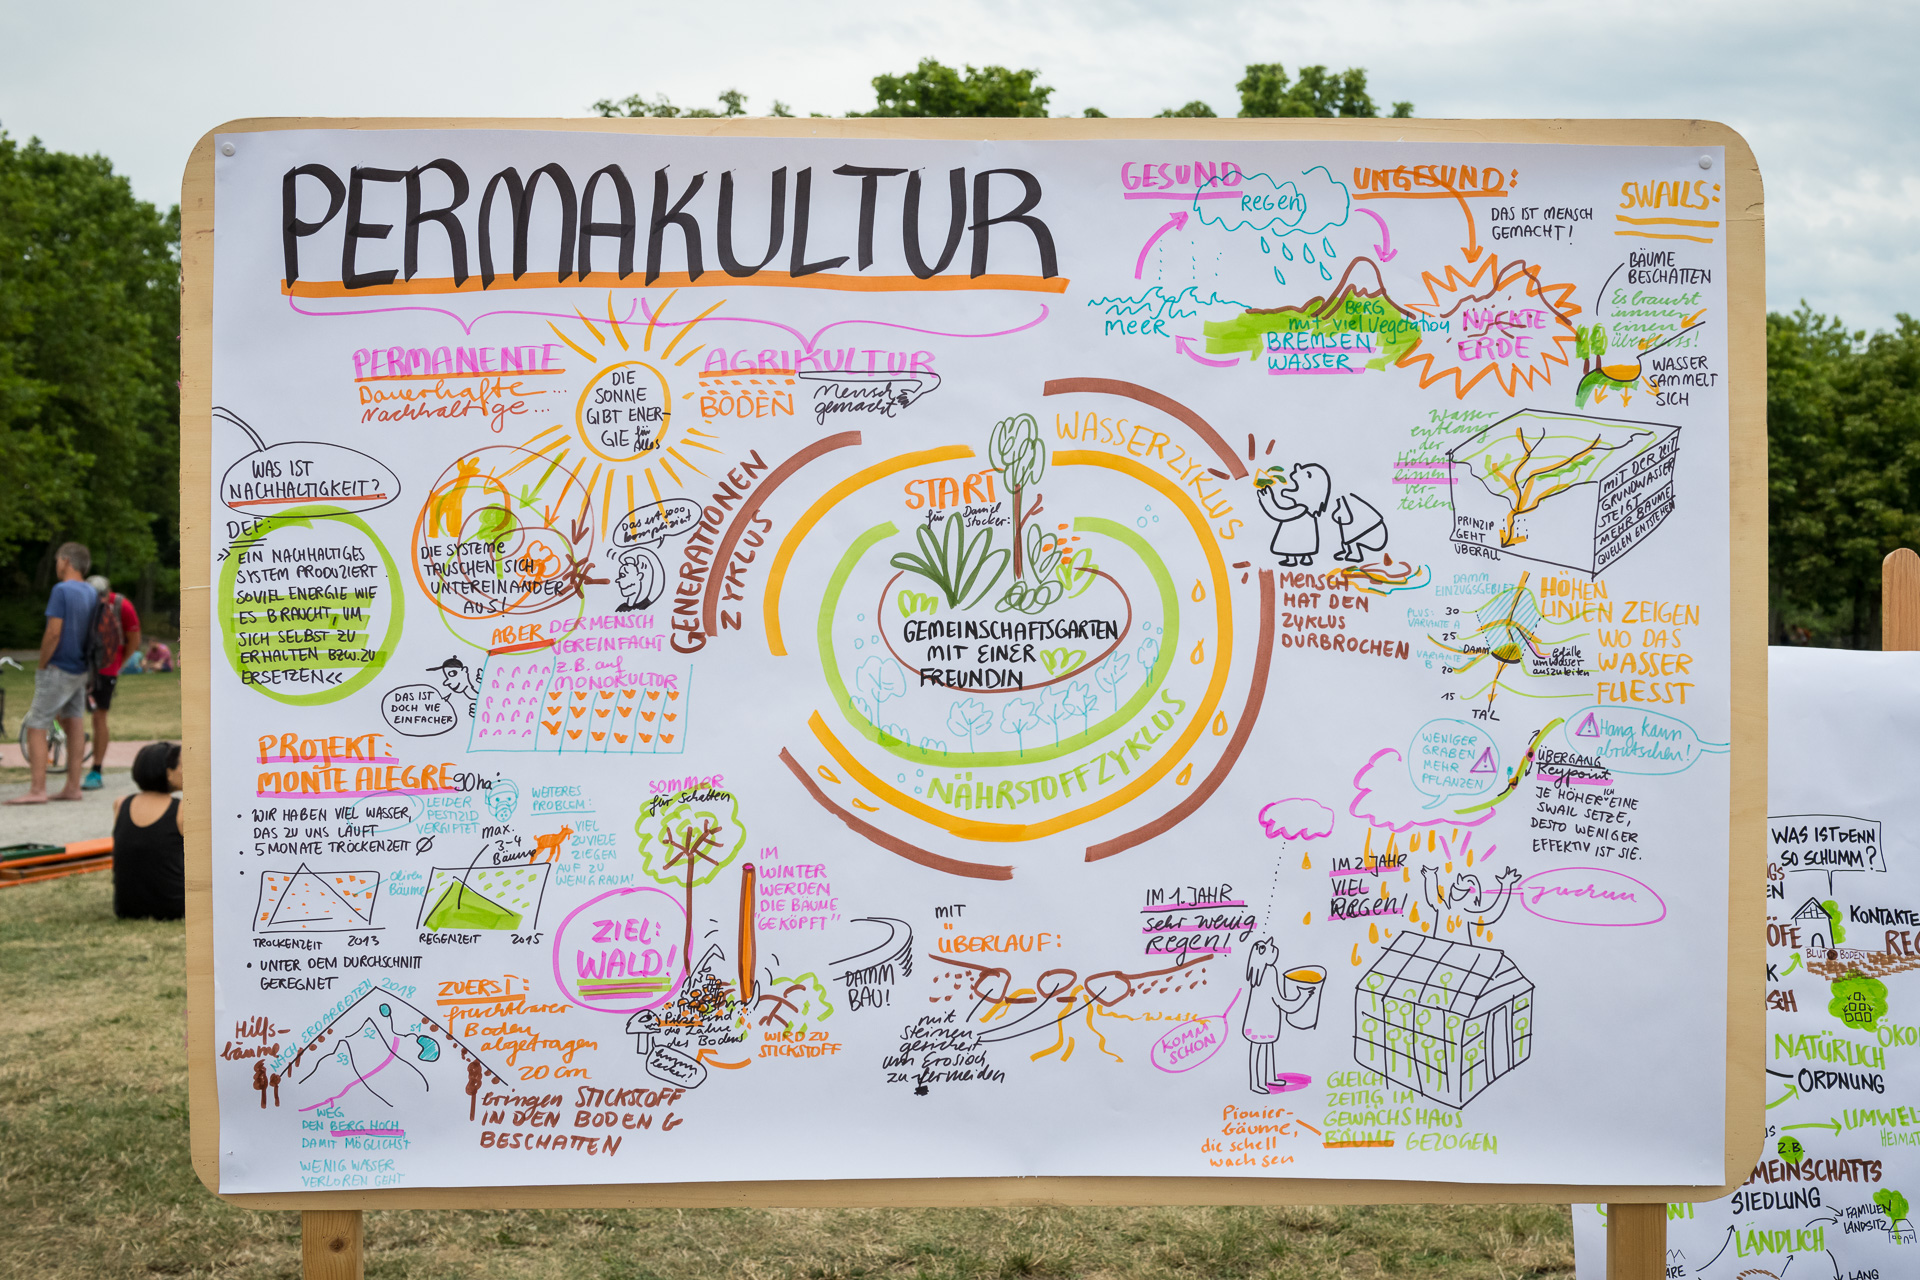 PERMAKULTUR
PERMANENTE
Dauerhafte...
Nachhaltige...
AGRIKULTUR
BÖDEN
Mensch
gemacht
DIE
SONNE
GIBT ENER-
GIE für
Alles
WAS IST
NACHHALTIGKEIT?
DEF:
>> EIN NACHHALTIGES
SYSTEM PRODUZIERT
SOVIEL ENERGIE WIE
ES BRAUCHT, UM
SICH SELBST ZU
ERHALTEN BZW. ZU
ERSETZEN <<
DIE SYSTEME
TAUSCHEN SICH
UNTEREINANDER
AUS!
Das ist sooo
kompliziert
ABER
DER MENSCH
VEREINFACHT
z.B. auf
MONOKULTUR
DAS IST
DOCH VIE
EINFACHER
GENERATIONEN
ZYKLUS
WASSERZYKLUS
NÄHRSTOFFZYKLUS
START
für Daniel
Stocker:
GEMEINSCHAFTSGARTEN
MIT EINER
FREUNDIN
MENSCH
HAT DEN
ZYKLUS
DURBROCHEN
GESUND
REGEN
MEER
BERG
mit viel Vegetation
BREMSEN
WASSER
UNGESUND:
DAS IST MENSCH
GEMACHT!
NACKTE
ERDE
SWAILS:
BÄUME
BESCHATTEN
Es braucht
immer
einen
überfluss!
WASSER
SAMMELT
SICH
Wasser
entlang
der
Höhen
linien
ver-
teilen
PRINZIP
GEHT
ÜBERALL
MIT DER ZEIT
GRUNDWASSER
STEIGT
MEHR BÄUME
QUELLEN ENTSTEHEN
DAMM
EINZUGSGEBIET
PLUS: 30
VARIANTE A
25
DAMM
VARIANTE
B 20
15
TAL
Gefälle
um Wasser
auszuleiten
HÖHEN
LINIEN ZEIGEN
WO DAS
WASSER
FLIESST
WENIGER
GRABEN
MEHR
PFLANZEN
Hang kann
abrutschen!
ÜBERGANG
Keypoint
JE HÖHER ICH EINE
SWAIL SETZE,
DESTO WENIGER
EFFEKTIV IST SIE.
PROJEKT:
MONTE ALEGRE 90ha:
• WIR HABEN VIEL WASSER,
DAS ZU UNS LÄUFT
LEIDER
PESTIZID
VERGIFTET
• 5 MONATE TROCKENZEIT
WEITERES
PROBLEM:
VIEL
ZUVIELE
ZIEGEN
AUF ZU
WENIG RAUM!
max.
3-4
Bäume
Oliven
Bäume
TROCKENZEIT 2013
REGENZEIT 2015
• UNTER DEM DURCHSCHNITT
GEREGNET
Hilfs-
bäume
NACH ERDARBEITEN 2018
S1
S2
S3
WEG
DEN BERG HOCH,
DAMIT MÖGLICHST
WENIG WASSER
VERLOREN GEHT
ZUERST:
fruchtbarer
Boden
abgetragen
20 cm
bringen STICKSTOFF
IN DEN BODEN &
BESCHATTEN
SOMMER
für Schatten
ZIEL:
WALD!
IM
WINTER
WERDEN
DIE BÄUME
"GEKÖPFT"
Pilze sind
die Zähne
des Bodens
lecker!
WIRD ZU
STICKSTOFF
DAMM
BAU!
MIT
ÜBERLAUF:
mit
Steinen
gesichert
um Erosion
zu vermeiden
Wasser
IM 1. JAHR
sehr wenig
Regen!
KOMM
SCHON
IM 2. JAHR
VIEL
REGEN!
GLEICH
ZEITIG IM
GEWÄCHSHAUS
BÄUME GEZOGEN
Pionier-
bäume,
die schell
wachsen
WAS IST DENN
SO SCHLIMM?
KONTAKTE
BLUT BODEN
NATÜRLICH
ORDNUNG
ÖKO
UMWEL
HEIMAT
Z.B.
MEINSCHAFTS
SIEDLUNG
FAMILIEN
LANDSITZ
LÄNDLICH
LANG